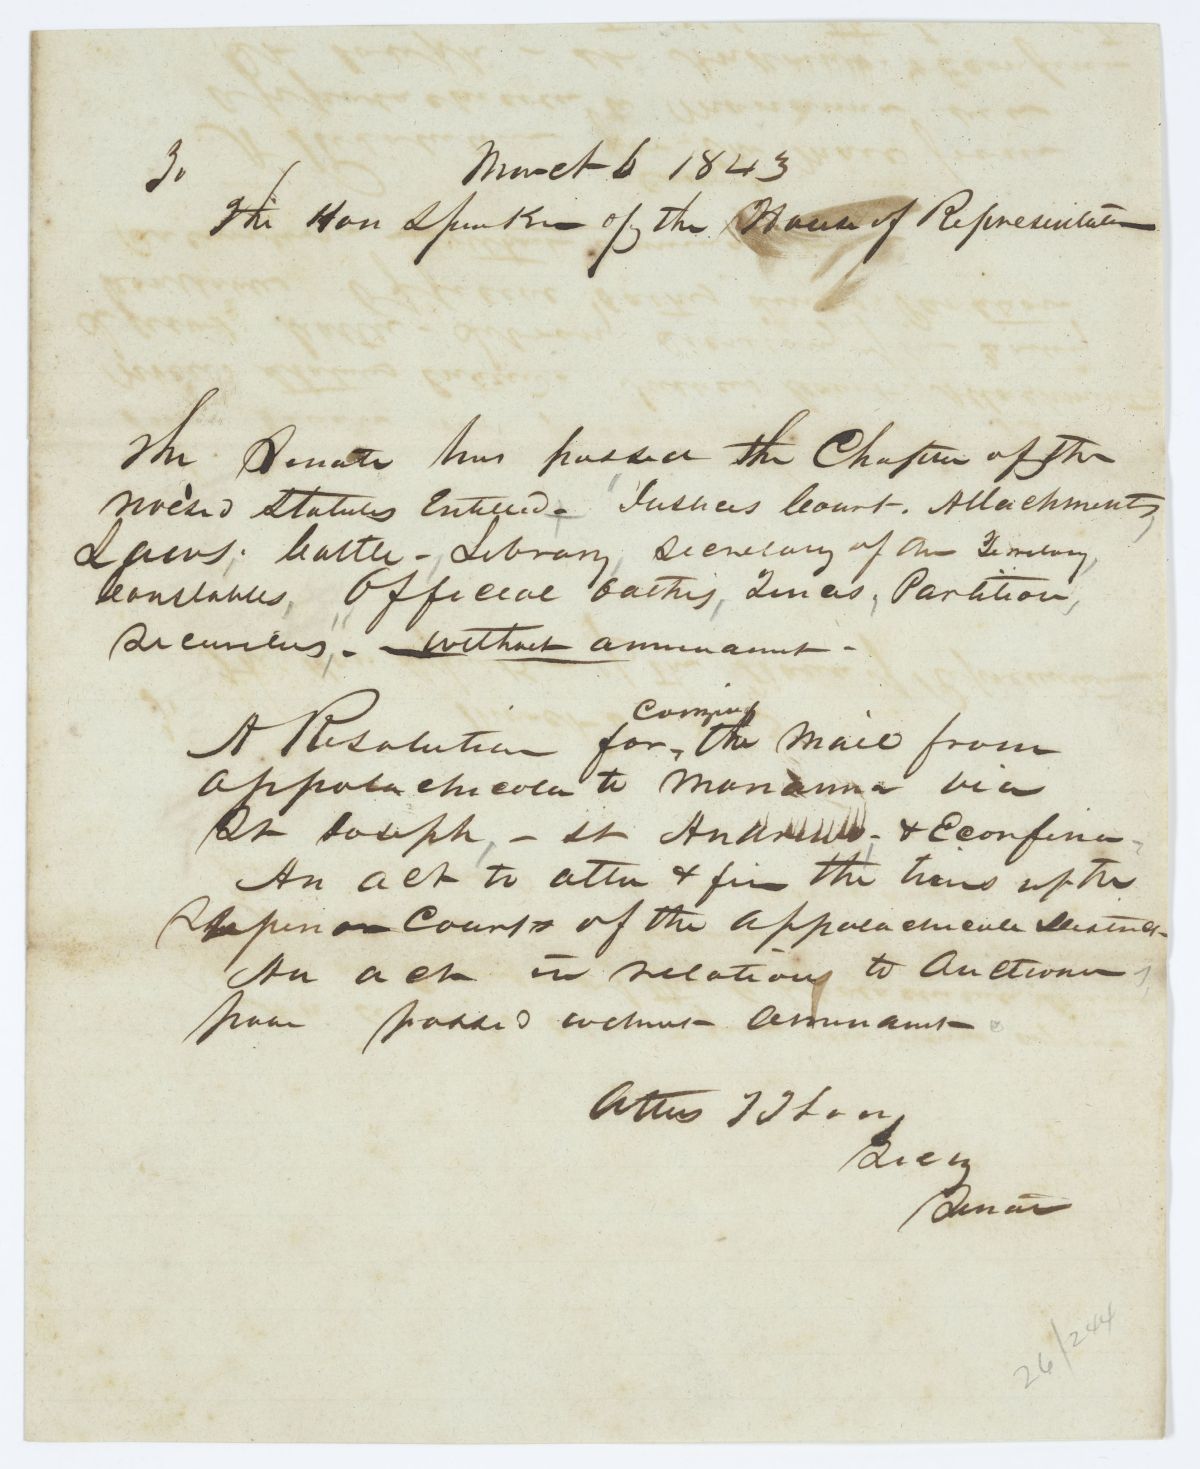 March 6 1843
To
The Hon Speaker of the House of Representatives
The Senate has passed the Chapter of the
Statutes Entitled - Justices Court. Attachments,
Laws, Cattle -, Library, Secretary of the Territory,
Constables, Official Oaths, Partition,
Securities, - without amendment -
A Resolution for carrying the Mail from
Appalachicola to Marianna via
St Joseph, - St Andrews, & Econfina -
An act to alter & fix the times of the
Superior Courts of the Appalachicola District
An act in relation to Auctioneers,
passed without amendment
Attest T J Long
Secy
Senate
26/244